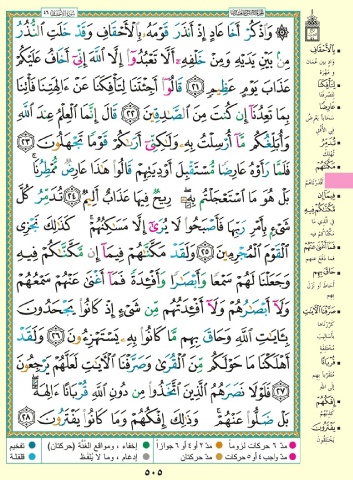 وَٱذْكُرْ أَخَا عَادٍ إِذْ أَنذَرَ قَوْمَهُۥ بِٱلْأَحْقَافِ وَقَدْ خَلَتِ ٱلنُّذُرُ
مِنۢ بَيْنِ يَدَيْهِ وَمِنْ خَلْفِهِۦٓ أَلَّا تَعْبُدُوٓا۟ إِلَّا ٱللَّهَ إِنِّىٓ أَخَافُ عَلَيْكُمْ
عَذَابَ يَوْمٍ عَظِيمٍ ٢١ قَالُوٓا۟ أَجِئْتَنَا لِتَأْفِكَنَا عَنْ ءَالِهَتِنَا فَأْتِنَا
بِمَا تَعِدُنَآ إِن كُنتَ مِنَ ٱلصَّـٰدِقِينَ ٢٢ قَالَ إِنَّمَا ٱلْعِلْمُ عِندَ ٱللَّهِ
وَأُبَلِّغُكُم مَّآ أُرْسِلْتُ بِهِۦ وَلَـٰكِنِّىٓ أَرَىٰكُمْ قَوْمًا تَجْهَلُونَ ٢٣
فَلَمَّا رَأَوْهُ عَارِضًا مُّسْتَقْبِلَ أَوْدِيَتِهِمْ قَالُوا۟ هَـٰذَا عَارِضٌ مُّمْطِرُنَا ۚ
بَلْ هُوَ مَا ٱسْتَعْجَلْتُم بِهِۦ ۖ رِيحٌ فِيهَا عَذَابٌ أَلِيمٌ ٢٤ تُدَمِّرُ كُلَّ
شَىْءٍۭ بِأَمْرِ رَبِّهَا فَأَصْبَحُوا۟ لَا يُرَىٰٓ إِلَّا مَسَـٰكِنُهُمْ ۚ كَذَٰلِكَ نَجْزِى
ٱلْقَوْمَ ٱلْمُجْرِمِينَ ٢٥ وَلَقَدْ مَكَّنَّـٰهُمْ فِيمَآ إِن مَّكَّنَّـٰكُمْ فِيهِ
وَجَعَلْنَا لَهُمْ سَمْعًا وَأَبْصَـٰرًا وَأَفْـِٔدَةً فَمَآ أَغْنَىٰ عَنْهُمْ سَمْعُهُمْ
وَلَآ أَبْصَـٰرُهُمْ وَلَآ أَفْـِٔدَتُهُم مِّن شَىْءٍ إِذْ كَانُوا۟ يَجْحَدُونَ
بِـَٔايَـٰتِ ٱللَّهِ وَحَاقَ بِهِم مَّا كَانُوا۟ بِهِۦ يَسْتَهْزِءُونَ ٢٦ وَلَقَدْ
أَهْلَكْنَا مَا حَوْلَكُم مِّنَ ٱلْقُرَىٰ وَصَرَّفْنَا ٱلْـَٔايَـٰتِ لَعَلَّهُمْ يَرْجِعُونَ
٢٧ فَلَوْلَا نَصَرَهُمُ ٱلَّذِينَ ٱتَّخَذُوا۟ مِن دُونِ ٱللَّهِ قُرْبَانًا ءَالِهَةًۢ ۖ
بَلْ ضَلُّوا۟ عَنْهُمْ ۚ وَذَٰلِكَ إِفْكُهُمْ وَمَا كَانُوا۟ يَفْتَرُونَ ٢٨
بِٱلْأَحْقَافِ
لِتَأْفِكَنَا
لتصرفنا
عَارِضًا
تُدَمِّرُ
تهلك
مَكَّنَّـٰهُمْ
فِيمَآ إِن
مَّكَّنَّـٰكُمْ فِيهِ
فَمَآ أَغْنَىٰ عَنْهُمْ
حَاقَ بِهِم
أحاط أو نزل
بهم
صَرَّفْنَا ٱلْـَٔايَـٰتِ
كررناها
قُرْبَانًا
إِفْكُهُمْ
كذبهم
يَفْتَرُونَ
يختلقون
مدّ ٦ حركات لزوماً مدّ ٢ أو ٤ أو ٦ جوازاً إخفاء، ومواقع الغنّة (حركتان) تفخيم
مدّ واجب ٤ أو ٥ حركات مدّ حركتان إدغام، وما لا يُلفظ قلقلة
٥٠٥